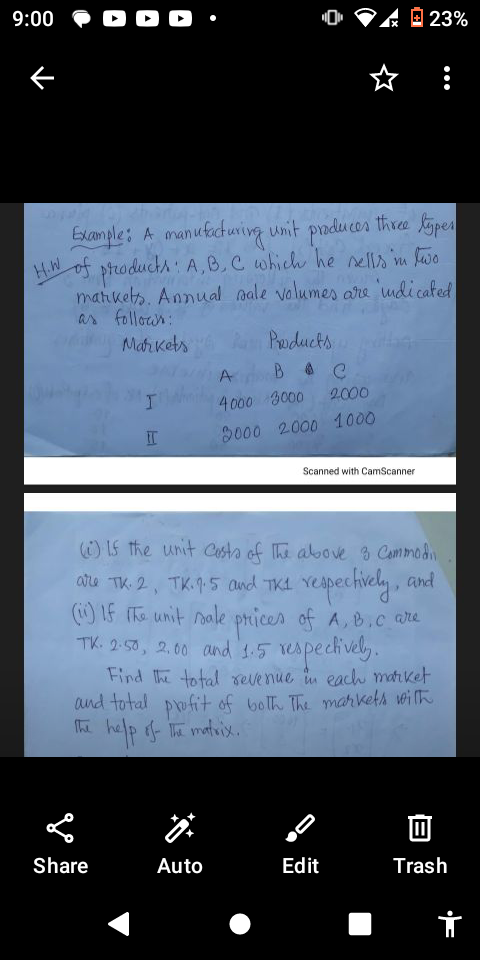 9:00
23%
Example: A manufacturing unit produces three types
H.W of products: A, B, C which he sells in two
markets. Annual sale volumes are indicated
as follows:
Markets Products
A B C
I 4000 3000 2000
II 3000 2000 1000
Scanned with CamScanner
(i) If the unit costs of the above 3 Commodi
are TK. 2, TK.1.5 and TK1 respectively, and
(ii) If the unit sale prices of A, B, C are
TK. 2.50, 2.00 and 1.5 respectively.
Find the total revenue in each market
and total profit of both the markets with
the help of the matrix.
Share Auto Edit Trash